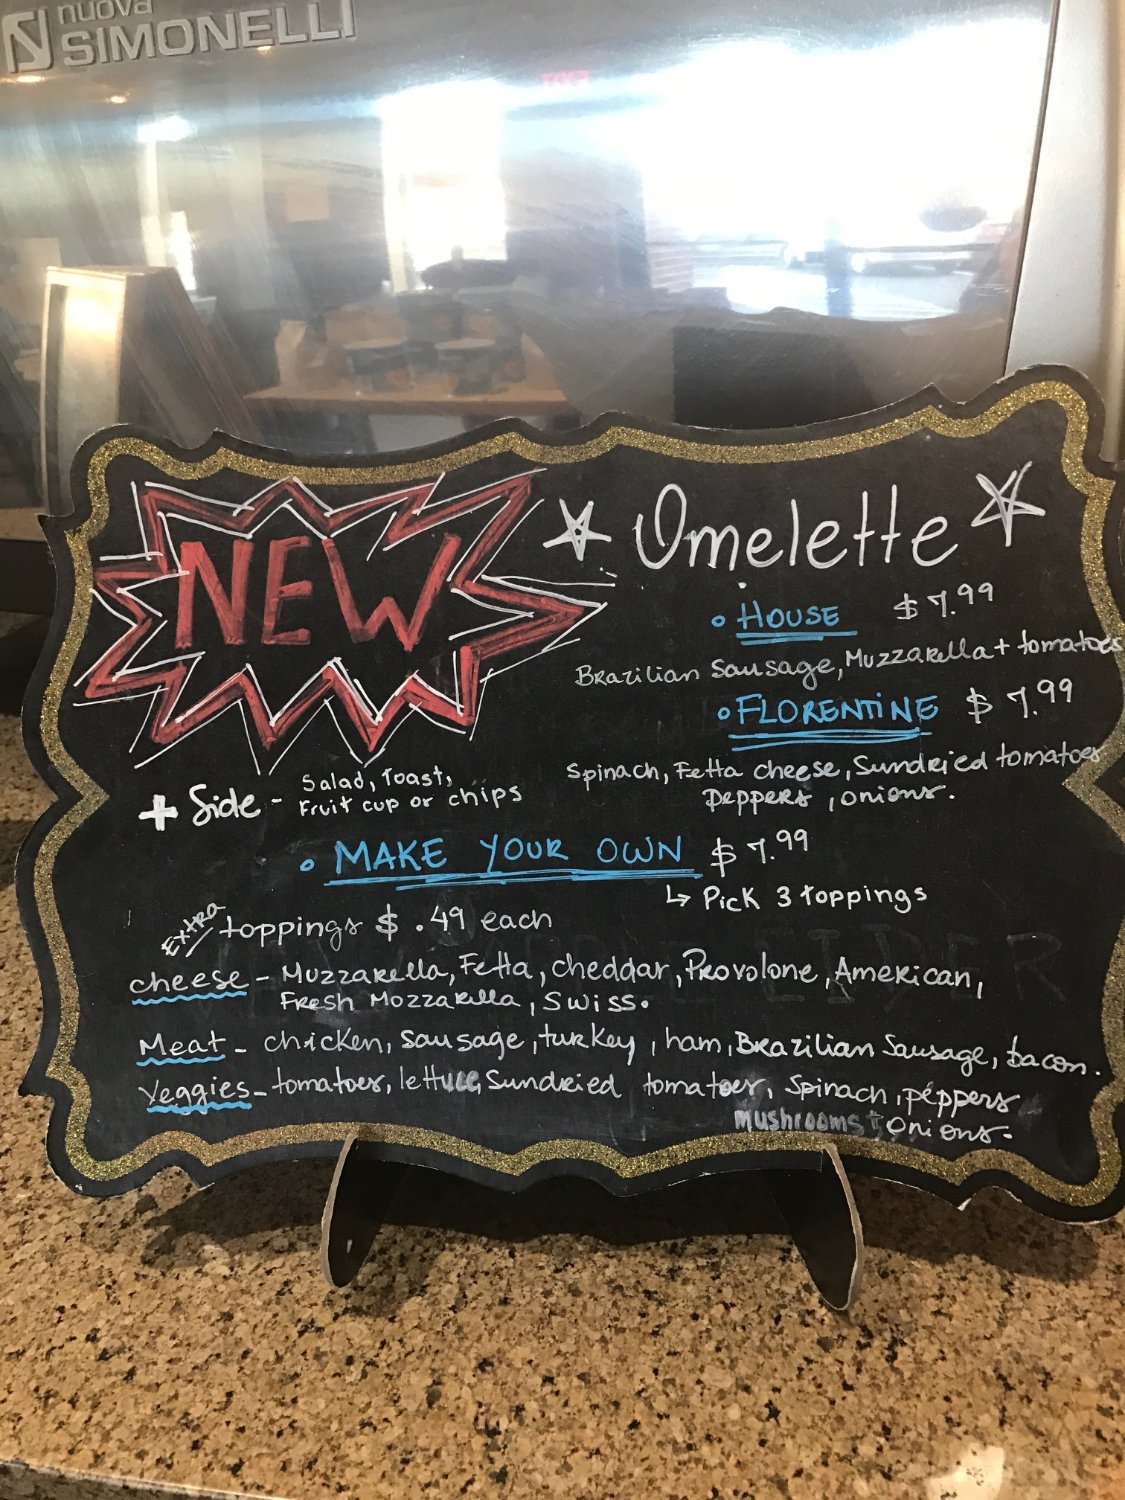 nuova
SIMONELLI
NEW
Omelette
HOUSE $7.99
Brazilian Sausage, Muzzarella + tomatoes
FLORENTINE $7.99
Spinach, Fetta cheese, Sundried tomatoes
Peppers, onions.
+ Side - Salad, Toast,
Fruit cup or chips
MAKE YOUR OWN $7.99
↳ Pick 3 toppings
EXTRA toppings $.49 each
cheese - Muzzarella, Fetta, cheddar, Provolone, American,
Fresh Mozzarella, Swiss.
Meat - chicken, sausage, turkey, ham, Brazilian Sausage, bacon.
Veggies - tomatoes, lettuce, Sundried tomatoes, Spinach, peppers
mushrooms + onions.